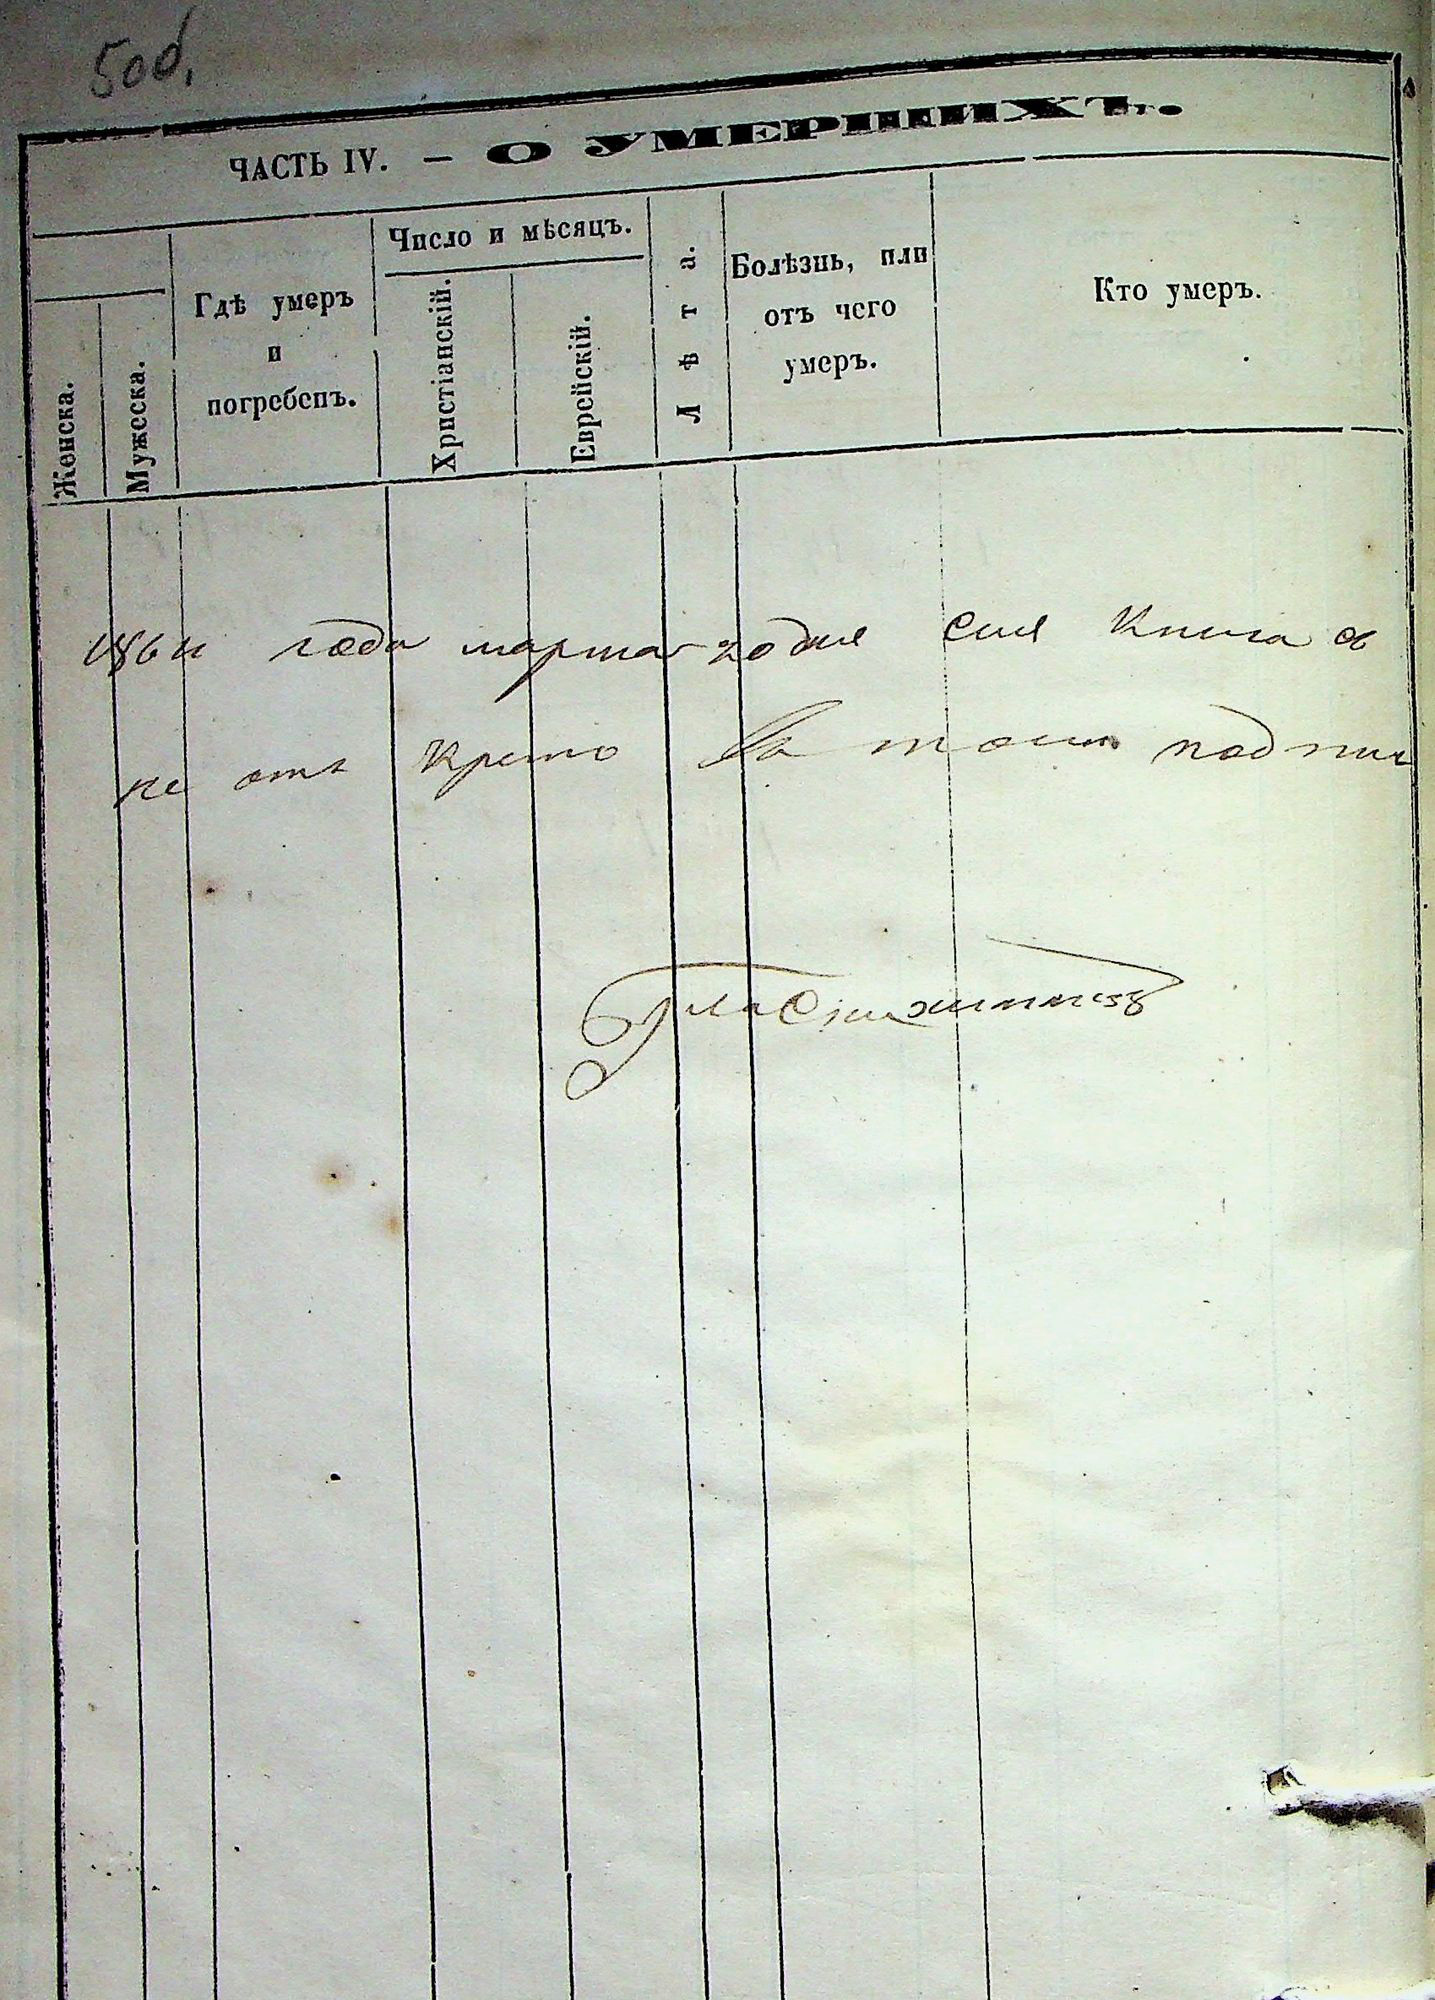 50об.
ЧАСТЬ IV. — О УМЕРШИХЪ.
Женска.
Мужеска.
Гдѣ умеръ
и
погребенъ.
Число и мѣсяцъ.
Христіанскій.
Еврейскій.
Лѣта.
Болѣзнь, или
отъ чего
умеръ.
Кто умеръ.
года марта 20 дня сия Книга
отъ въ томъ подпис